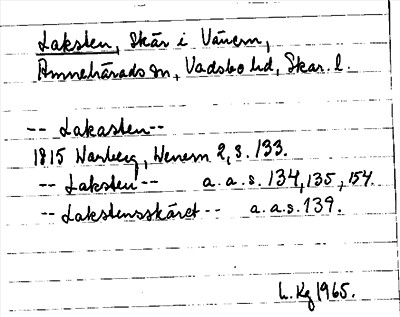 Laksten, Skär i Vänern,
Amnehärads sn, Vadsbo hd, Skar. l.
-- Lakasten --
1815 Warberg, Wenern 2, s. 133.
-- Laksten -- a. a. s. 134, 135, 154.
-- Lakstensskäret -- a. a. s. 139.
L. Kg 1965.